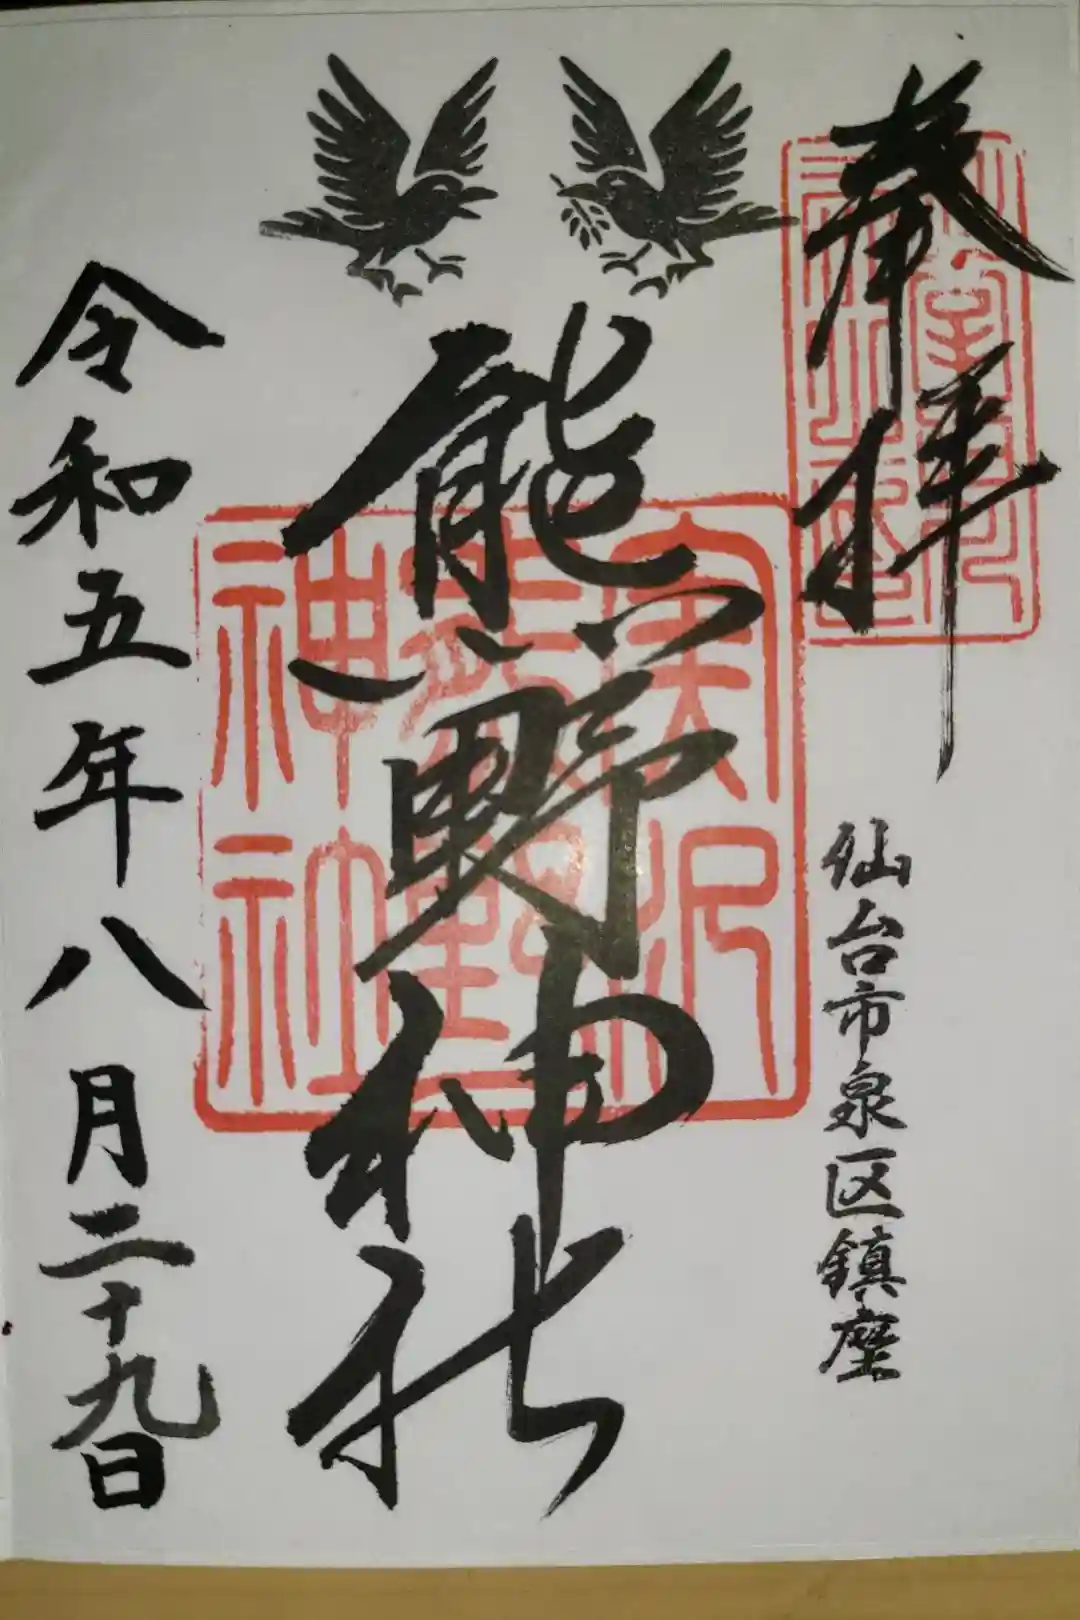 奉拝
仙台市泉区鎮座
熊野神社
実沢
熊野
神社
令和五年八月二十九日